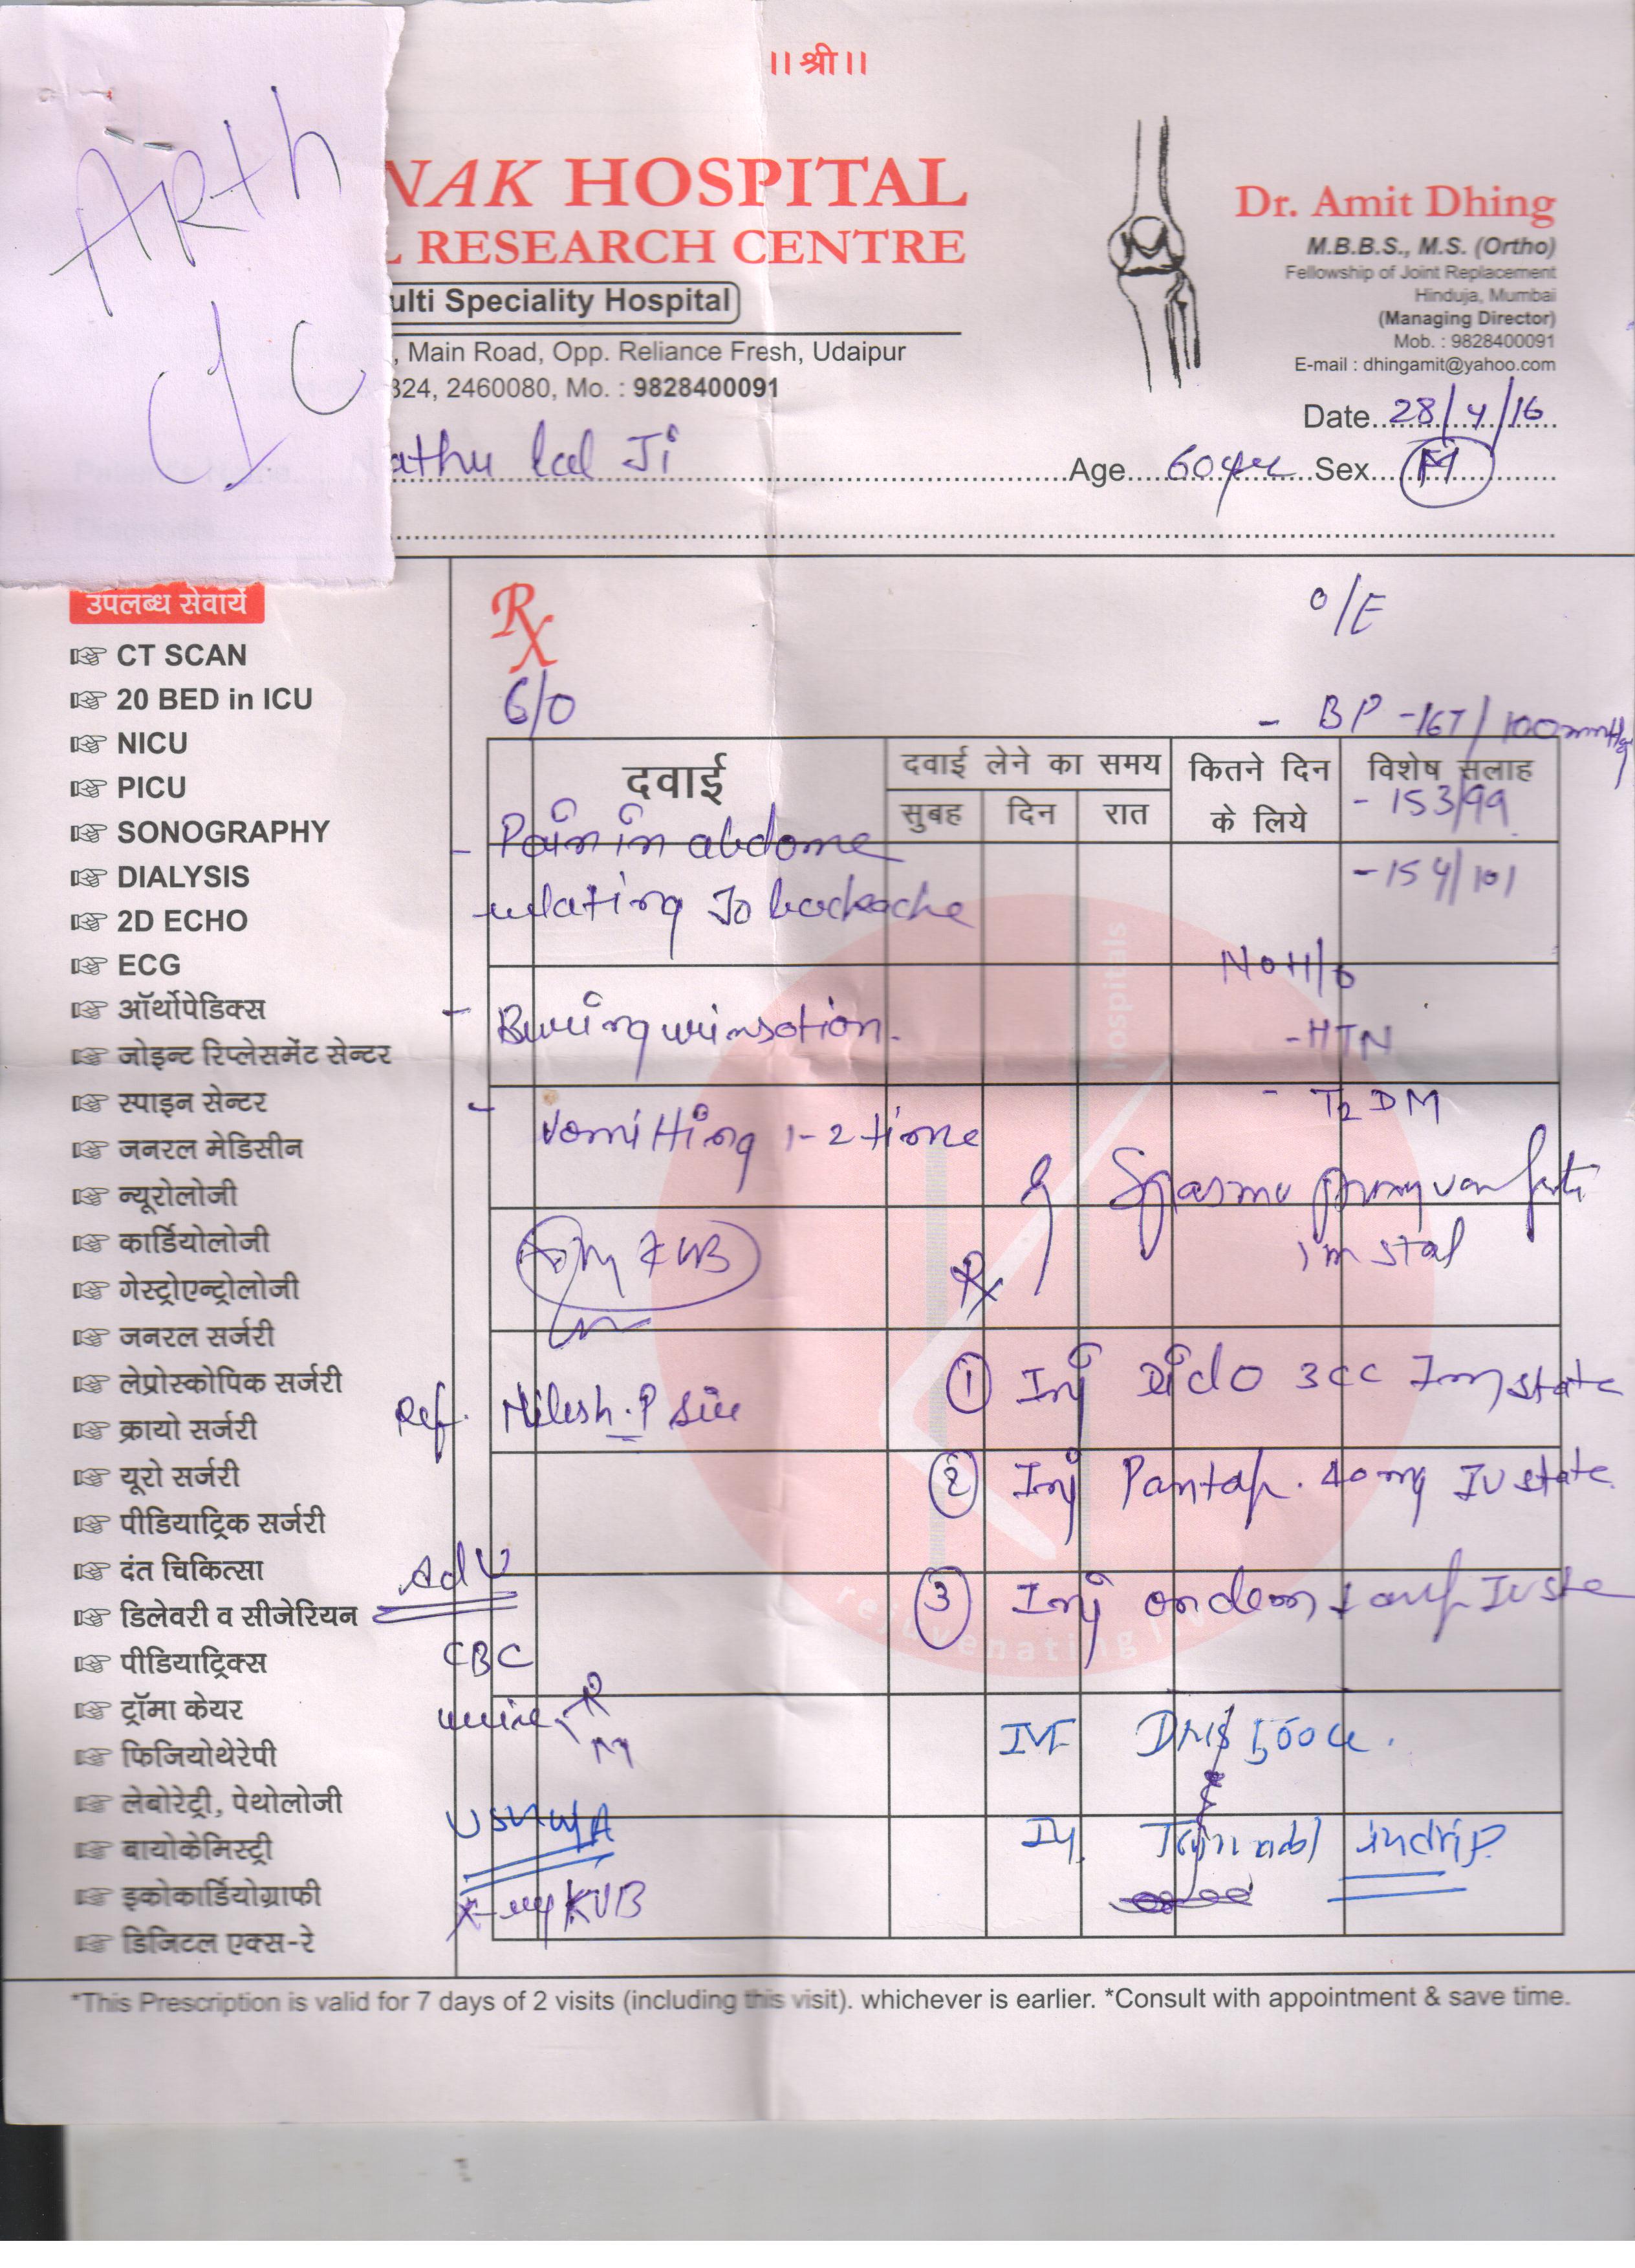 ।। श्री ।।
ARth
C1C
NAK HOSPITAL
L RESEARCH CENTRE
ulti Speciality Hospital
, Main Road, Opp. Reliance Fresh, Udaipur
324, 2460080, Mo. : 9828400091
Dr. Amit Dhing
M.B.B.S., M.S. (Ortho)
Fellowship of Joint Replacement
Hinduja, Mumbai
(Managing Director)
Mob. : 9828400091
E-mail : dhingamit@yahoo.com
Date 28/4/16
athu lal Ji Age 60 Sex M
उपलब्ध सेवायें
CT SCAN
20 BED in ICU
NICU
PICU
SONOGRAPHY
DIALYSIS
2D ECHO
ECG
ऑर्थोपेडिक्स
जोइन्ट रिप्लेसमेंट सेन्टर
स्पाइन सेन्टर
जनरल मेडिसीन
न्यूरोलोजी
कार्डियोलोजी
गेस्ट्रोएन्ट्रोलोजी
जनरल सर्जरी
लेप्रोस्कोपिक सर्जरी
क्रायो सर्जरी
यूरो सर्जरी
पीडियाट्रिक सर्जरी
दंत चिकित्सा
डिलेवरी व सीजेरियन
पीडियाट्रिक्स
ट्रॉमा केयर
फिजियोथेरेपी
लेबोरेट्री, पेथोलोजी
बायोकेमिस्ट्री
इकोकार्डियोग्राफी
डिजिटल एक्स-रे
Rx
O/E
C/O
- BP - 167/100mmHg
दवाई
दवाई लेने का समय
सुबह दिन रात
कितने दिन
के लिये
विशेष सलाह
- 153/99
- 154/101
- Pain in abdome
to backache
No H/o
- HTN
- T2DM
- Burning urination.
- Vomitting 1-2 time
Spasmo
im stat
KUB
Rx
Ref. Nilesh.P sir
① Inj Diclo 3cc Im state
② Inj Pantap. 40mg IV state
③ Inj ondem 1 amp IV sta
Adv
CBC
urine R
M
USN W/A
X-ray KUB
IVF DNS 500cc.
Inj. Tramadol in drip.
hospitals
rejuvenating
*This Prescription is valid for 7 days of 2 visits (including this visit). whichever is earlier. *Consult with appointment & save time.